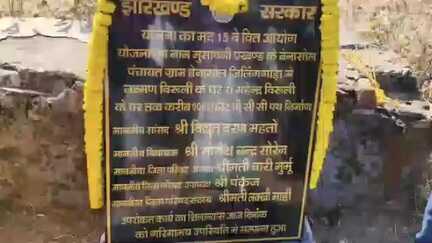 झारखण्ड सरकार
योजना का मद: 15 वें वित्त आयोग
योजना का नाम मुसाबनी प्रखण्ड के बेनासोल
पंचायत ग्राम बेनासोल
लक्ष्मण बिरूली के घर से महेन्द्र बिरूली
के घर तक करीब पी सी सी पथ निर्माण
माननीय सांसद श्री विद्युत वरण महतो
माननीय विधायक श्री सोरेन
माननीय जिला परिषद अध्यक्ष श्रीमती बारी मुर्मू
माननीय जिला परिषद उपाध्यक्ष श्री पंकज
माननीय जिला परिषद सदस्य श्रीमती लक्ष्मी मार्डी
उपरोक्त कार्य का शिलान्यास आज दिनांक
को गरिमामय उपस्थिति में सम्पन्न हुआ